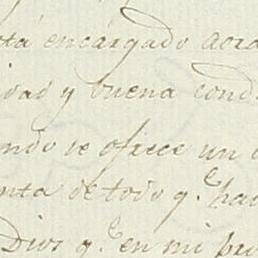 stá encargado acra
ivas y buena cond
ndo se ofrece un
nta de todo q.e ha
Dios q.e en mi pro